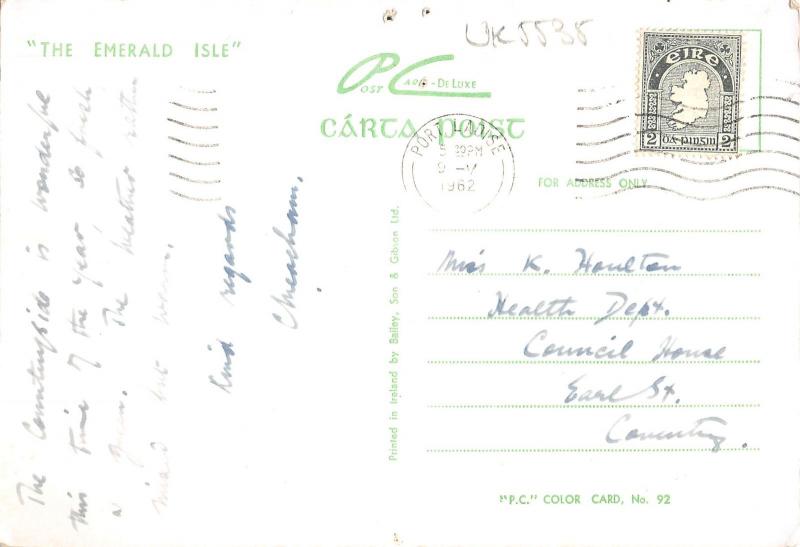 UK5535
"THE EMERALD ISLE"
POST CARD - DE LUXE
CÁRTA POIST
ÉIRE
2 2
DÁ PINGIN
PORT LAOISE
30PM
9 - V
1962
FOR ADDRESS ONLY
The Countryside is wonderful
this time of the year, so fresh
& green. The weather rather
mixed but warm.
Kind regards
Miss K. Houlton
Health Dept.
Council House
Earl St.
Coventry.
Printed in Ireland by Bailey, Son & Gibson Ltd.
"P.C." COLOR CARD, No. 92